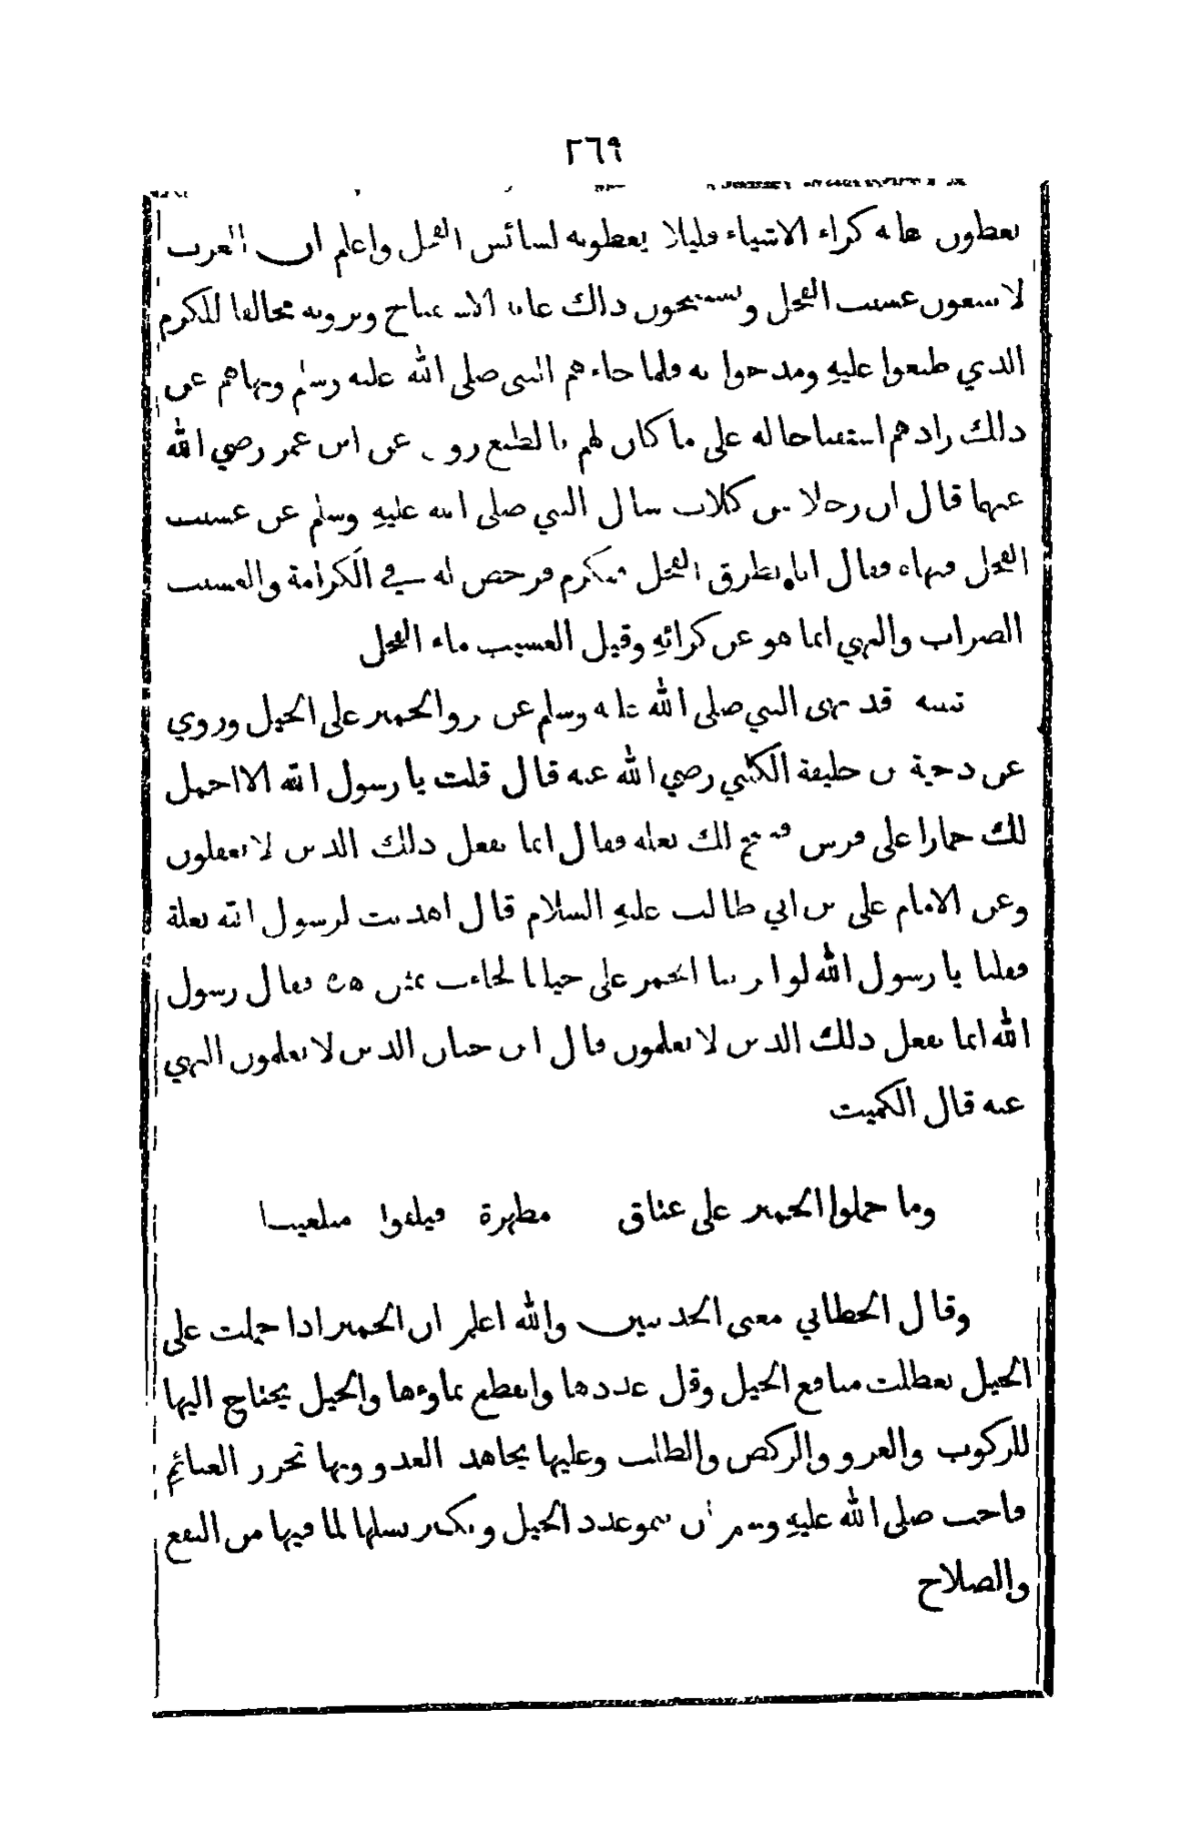 ٢٦٩
يعطون عليه كراء الا شياء قليلا يعطونه لسائس الفحل واعلم ان العرب
لا يبيعون عسيب الفحل ويستقبحون ذلك غاية الاستقباح ويرونه مخالفا للكرم
الذي طبعوا عليهِ ومدحوا به فلما جاءهم النبي صلى الله عليه وسلم ونهاهم عن
ذلك زادهم استقباحا له على ما كان لهم بالطبع روي عن ابن عمر رضي الله
عنهما قال ان رجلا من كلاب سال النبي صلى الله عليهِ وسلم عن عسيب
الفحل فنهاه فقال انا نطرق الفحل فنكرم فرخص له في الكرامة والعسيب
الضراب والنهي انما هو عن كرائهِ وقيل العسيب ماء الفحل
تنبيه قد نهى النبي صلى الله عليه وسلم عن نزو الحمير على الخيل وروي
عن دحية بن خليفة الكلبي رضي الله عنه قال قلت يا رسول الله الا احمل
لك حمارا على فرس فتنتج لك بغلة فقال انما يفعل ذلك الذين لا يعقلون
وعن الامام علي بن ابي طالب عليهِ السلام قال اهديت لرسول الله بغلة
فقلنا يا رسول الله لو انزينا الحمر على خيلنا لجاءت بمثل هذه فقال رسول
الله انما يفعل ذلك الذين لا يعلمون قال ابن حبان الذين لا يعلمون النهي
عنه قال الكميت
وما حملوا الحمير على عتاق مطهرة فيلفوا مبلغينا
وقال الخطابي معنى الحديثين والله اعلم ان الحمير اذا حملت على
الخيل تعطلت منافع الخيل وقل عددها وانقطع نماؤها والخيل يحتاج اليها
للركوب والغزو والركض والطلب وعليها يجاهد العدو وبها تحرز الغنائم
فاحب صلى الله عليهِ وسلم ان ينمو عدد الخيل ويكثر نسلها لما فيها من النفع
والصلاح